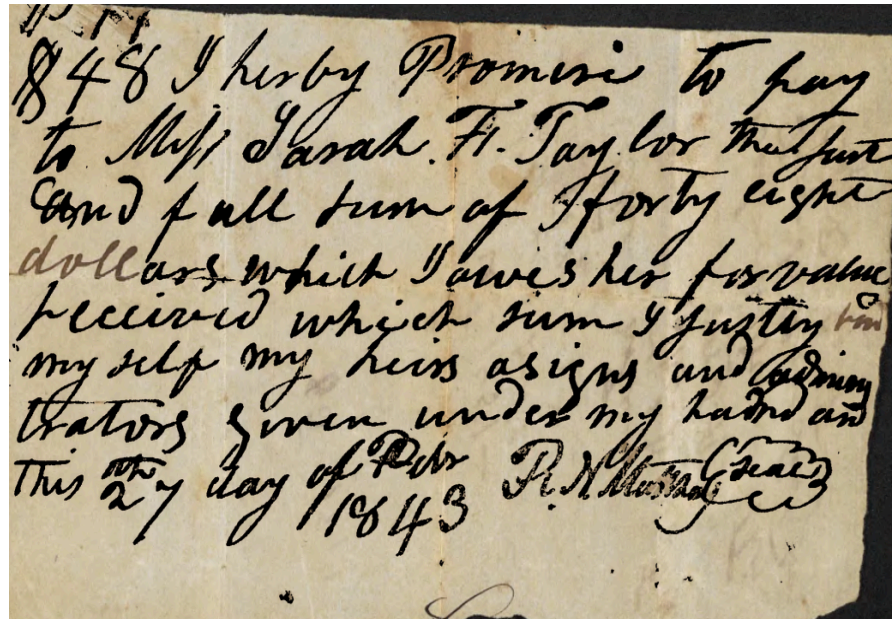 $48 I herby Promise to pay
to Miss Sarah. F. Taylor the just
and full sum of fforty eight
dollars which I owes her for value
received which sum I justly bind
my self my heirs asigns and adminis
trators given under my hadnd and
this 27th day of Febr
1843 R. N. (seal)